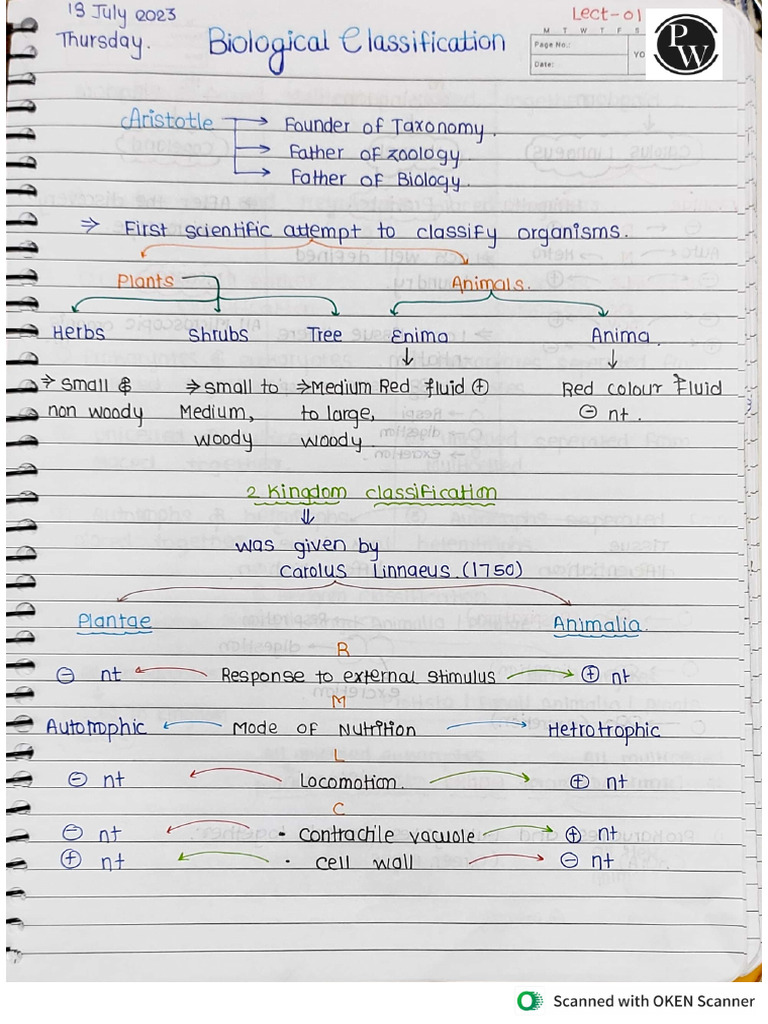 13 July 2023
Thursday.
Lect-01
Biological Classification
M T W T F S
Page No.:
Date:
YO
PW
Aristotle → Founder of Taxonomy.
→ Father of zoology.
→ Father of Biology.
⇒ First scientific attempt to classify organisms.
Plants Animals.
Herbs Shrubs Tree Enima Anima.
⇒ Small & ⇒ small to ⇒ Medium Red fluid ⊕ Red colour Fluid
non woody Medium, to large, ⊖ nt.
woody woody.
2 Kingdom classification
⇓
was given by
Carolus Linnaeus. (1750)
Plantae Animalia.
R
⊖ nt ← Response to external stimulus → ⊕ nt
M
Autotrophic ← Mode of Nutrition → Hetrotrophic
L
⊖ nt ← Locomotion. → ⊕ nt
C
⊖ nt ← • contractile vacuole → ⊕ nt
⊕ nt ← • cell wall → ⊖ nt
Scanned with OKEN Scanner